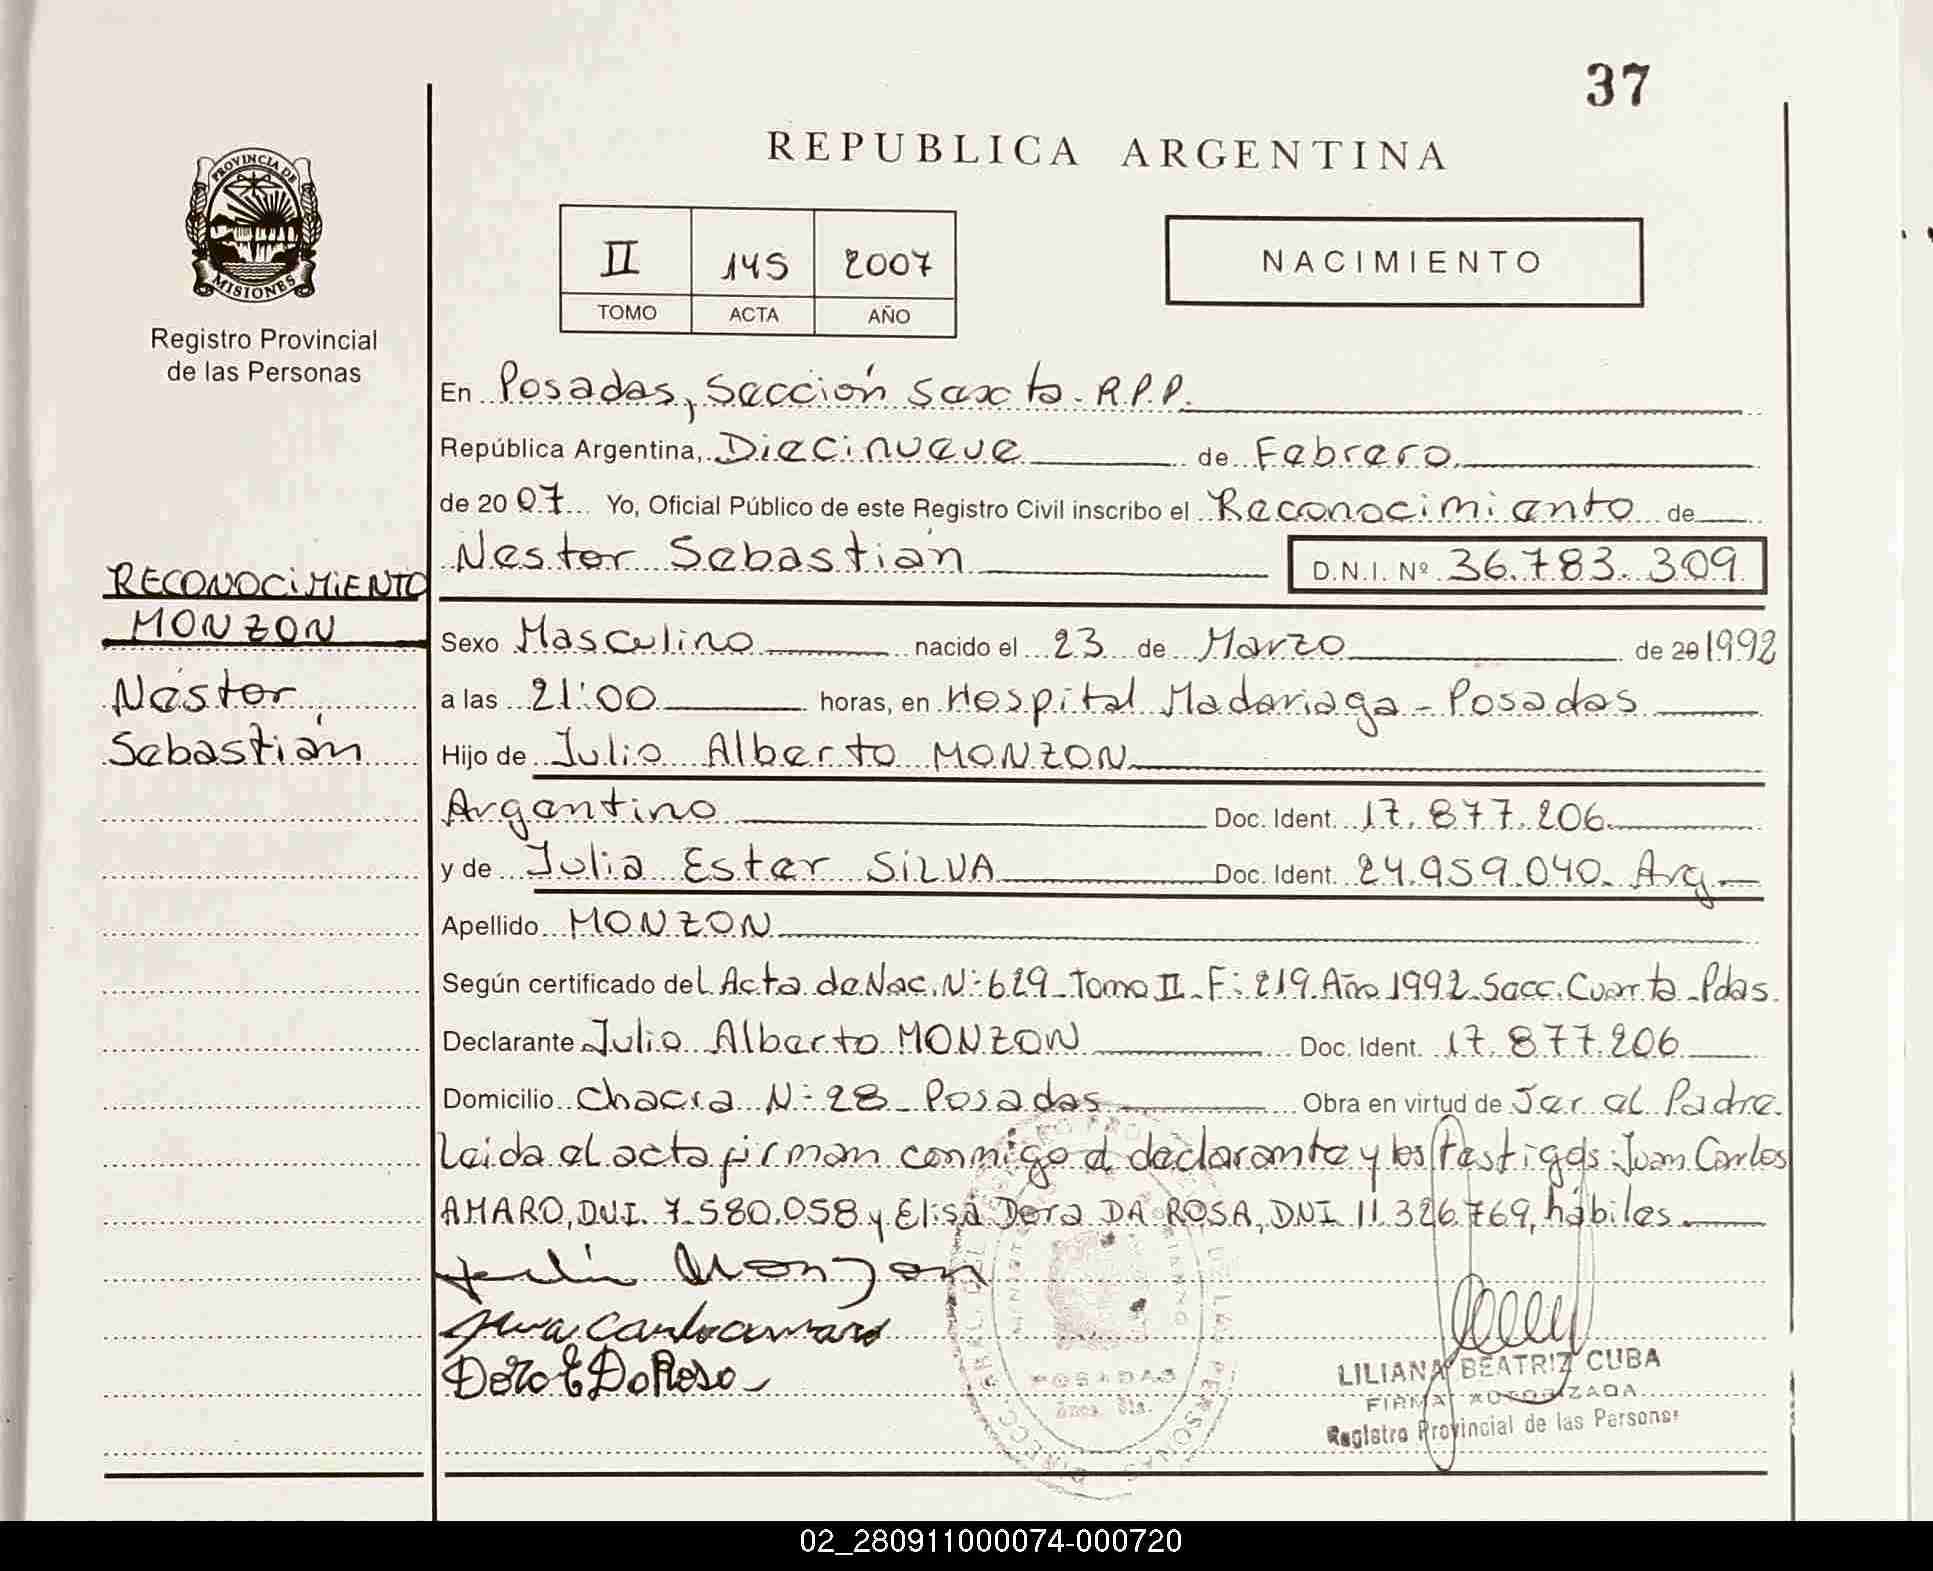 37
REPUBLICA ARGENTINA
PROVINCIA DE
MISIONES
Registro Provincial
de las Personas
II 145 2007
TOMO ACTA AÑO
NACIMIENTO
En Posadas, Sección Sexta. R.P.P.
República Argentina, Diecinueve de Febrero
de 2007 Yo, Oficial Público de este Registro Civil inscribo el Reconocimiento de
Nestor Sebastián D.N.I. Nº 36.783.309
RECONOCIMIENTO
MONZON
Néstor
Sebastián
Sexo Masculino nacido el 23 de Marzo de 20 1992
a las 21:00 horas, en Hospital Madariaga - Posadas
Hijo de Julio Alberto MONZON
Argentino Doc. Ident. 17.877.206
y de Julia Ester SILVA Doc. Ident. 24.959.040. Arg
Apellido MONZON
Según certificado del Acta de Nac. N: 629 Tomo II F: 219 Año 1992 Secc. Cuarta Pdas.
Declarante Julio Alberto MONZON Doc. Ident. 17.877.206
Domicilio Chacra N: 28 Posadas Obra en virtud de Ser el Padre.
Leida el acta firman conmigo el declarante y los testigos: Juan Carlos
AMARO, DNI. 7.580.058 y Elisa Dora DA ROSA, DNI 11.326.769, hábiles
Monzon
Juan Carlos amaro
Dora E Da Rosa
POSADAS
LILIANA BEATRIZ CUBA
FIRMA AUTORIZADA
Registro Provincial de las Personas
02_280911000074-000720